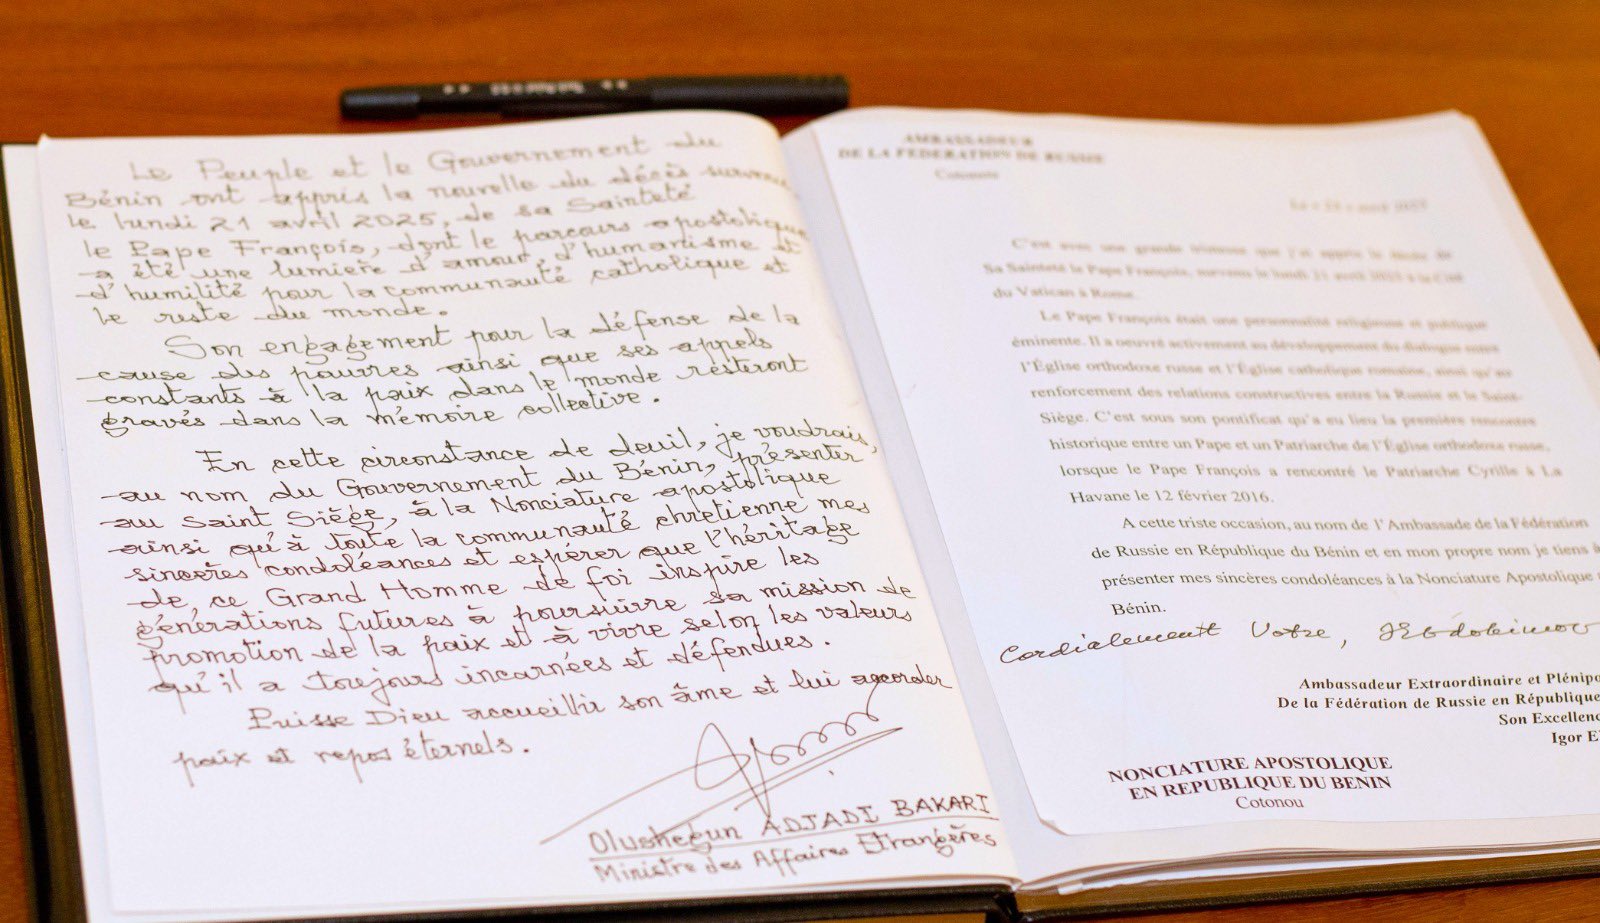 Le Peuple et le Gouvernement du
Bénin ont appris la nouvelle du décès survenu
le lundi 21 avril 2025, de sa Sainteté
le Pape François, dont le parcours apostolique
a été une lumière d'amour, d'humanisme et
d'humilité pour la communauté catholique et
le reste du monde.
Son engagement pour la défense de la
cause des pauvres ainsi que ses appels
constants à la paix dans le monde resteront
gravés dans la mémoire collective.
En cette circonstance de deuil, je voudrais,
au nom du Gouvernement du Bénin, présenter
au Saint Siège, à la Nonciature apostolique
ainsi qu'à toute la communauté chretienne mes
sincères condoléances et espérer que l'héritage
de ce Grand Homme de foi inspire les
générations futures à poursuivre sa mission de
promotion de la paix et à vivre selon les valeurs
qu'il a toujours incarnées et défendues.
Puisse Dieu accueillir son âme et lui accorder
paix et repos éternels.
Olushegun ADJADI BAKARI
Ministre des Affaires Etrangères
AMBASSADEUR
DE LA FEDERATION DE RUSSIE
Cotonou
C'est avec une grande tristesse que j'ai appris le décès de
Sa Sainteté le Pape François, survenu le lundi 21 avril 2025 à la Cité
du Vatican à Rome.
Le Pape François était une personnalité religieuse et publique
éminente. Il a oeuvré activement au développement du dialogue entre
l'Église orthodoxe russe et l'Église catholique romaine, ainsi qu'au
renforcement des relations constructives entre la Russie et le Saint-
Siège. C'est sous son pontificat qu'a eu lieu la première rencontre
historique entre un Pape et un Patriarche de l'Église orthodoxe russe,
lorsque le Pape François a rencontré le Patriarche Cyrille à La
Havane le 12 février 2016.
A cette triste occasion, au nom de l'Ambassade de la Fédération
de Russie en République du Bénin et en mon propre nom je tiens à
présenter mes sincères condoléances à la Nonciature Apostolique
Bénin.
Cordialement Votre,
Ambassadeur Extraordinaire et Plénipo
De la Fédération de Russie en République
Son Excellenc
Igor E
NONCIATURE APOSTOLIQUE
EN REPUBLIQUE DU BENIN
Cotonou